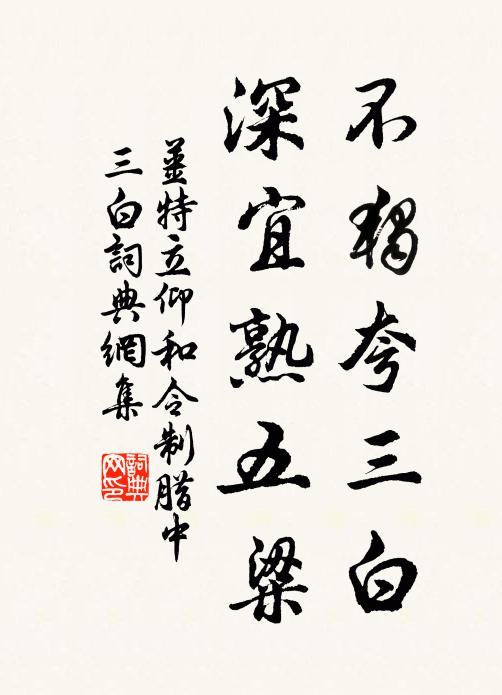 不獨夸三白
深宜熟五粱
薑特立仰和令制腊中
三白詞典網集
詞典
网印